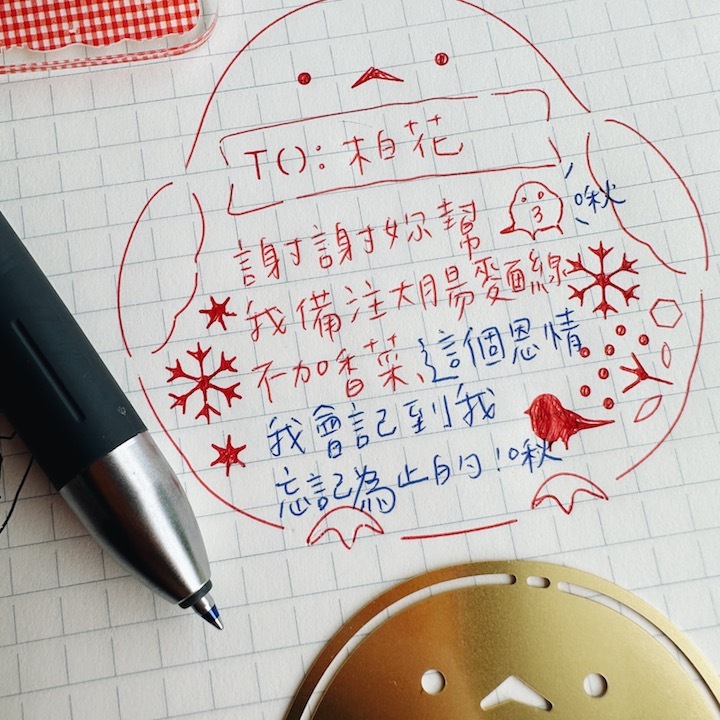 TO：柏花
謝謝妳幫
啾
我備注大腸麵線
不加香菜，這個恩情
我會記到我
忘記為止的！啾